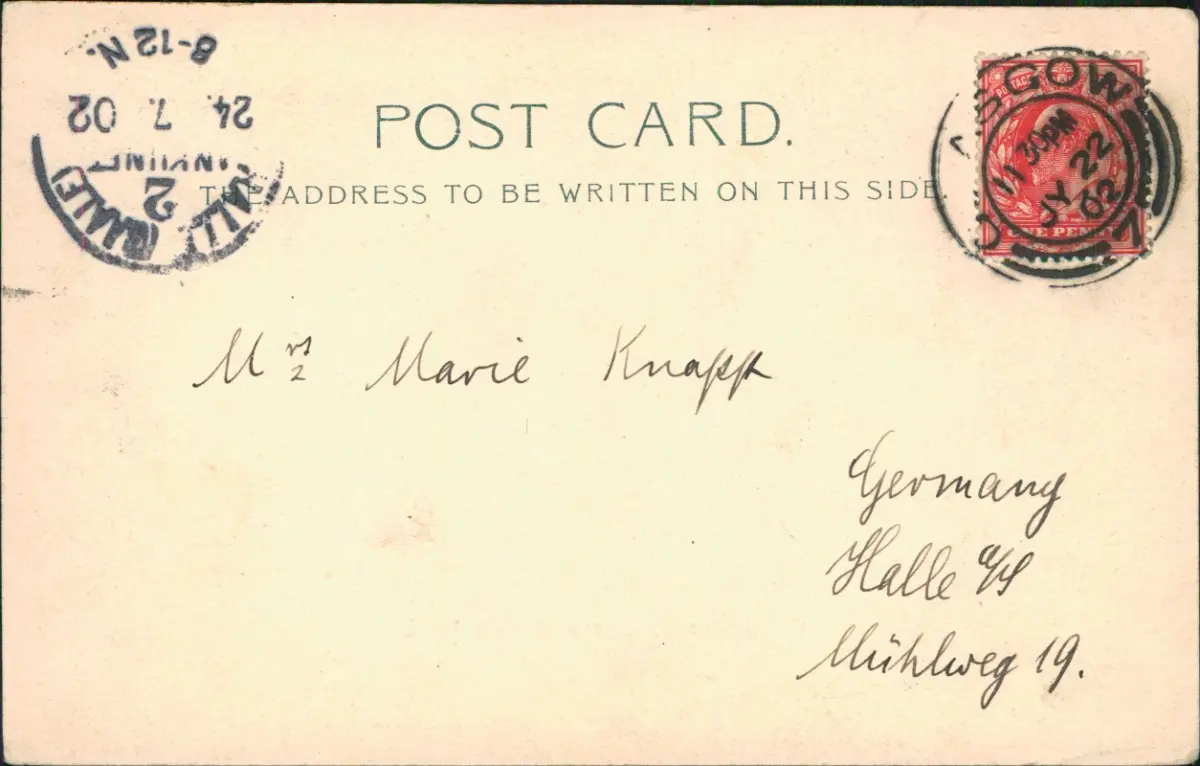 POST CARD.
THE ADDRESS TO BE WRITTEN ON THIS SIDE.
POSTAGE
ONE PENNY
11 30PM
JY 22
02
7
HALLE (SAALE)
2
24. 7. 02
8-12 N.
Mrs Marie Knapp
Germany
Halle a/S
Mühlweg 19.